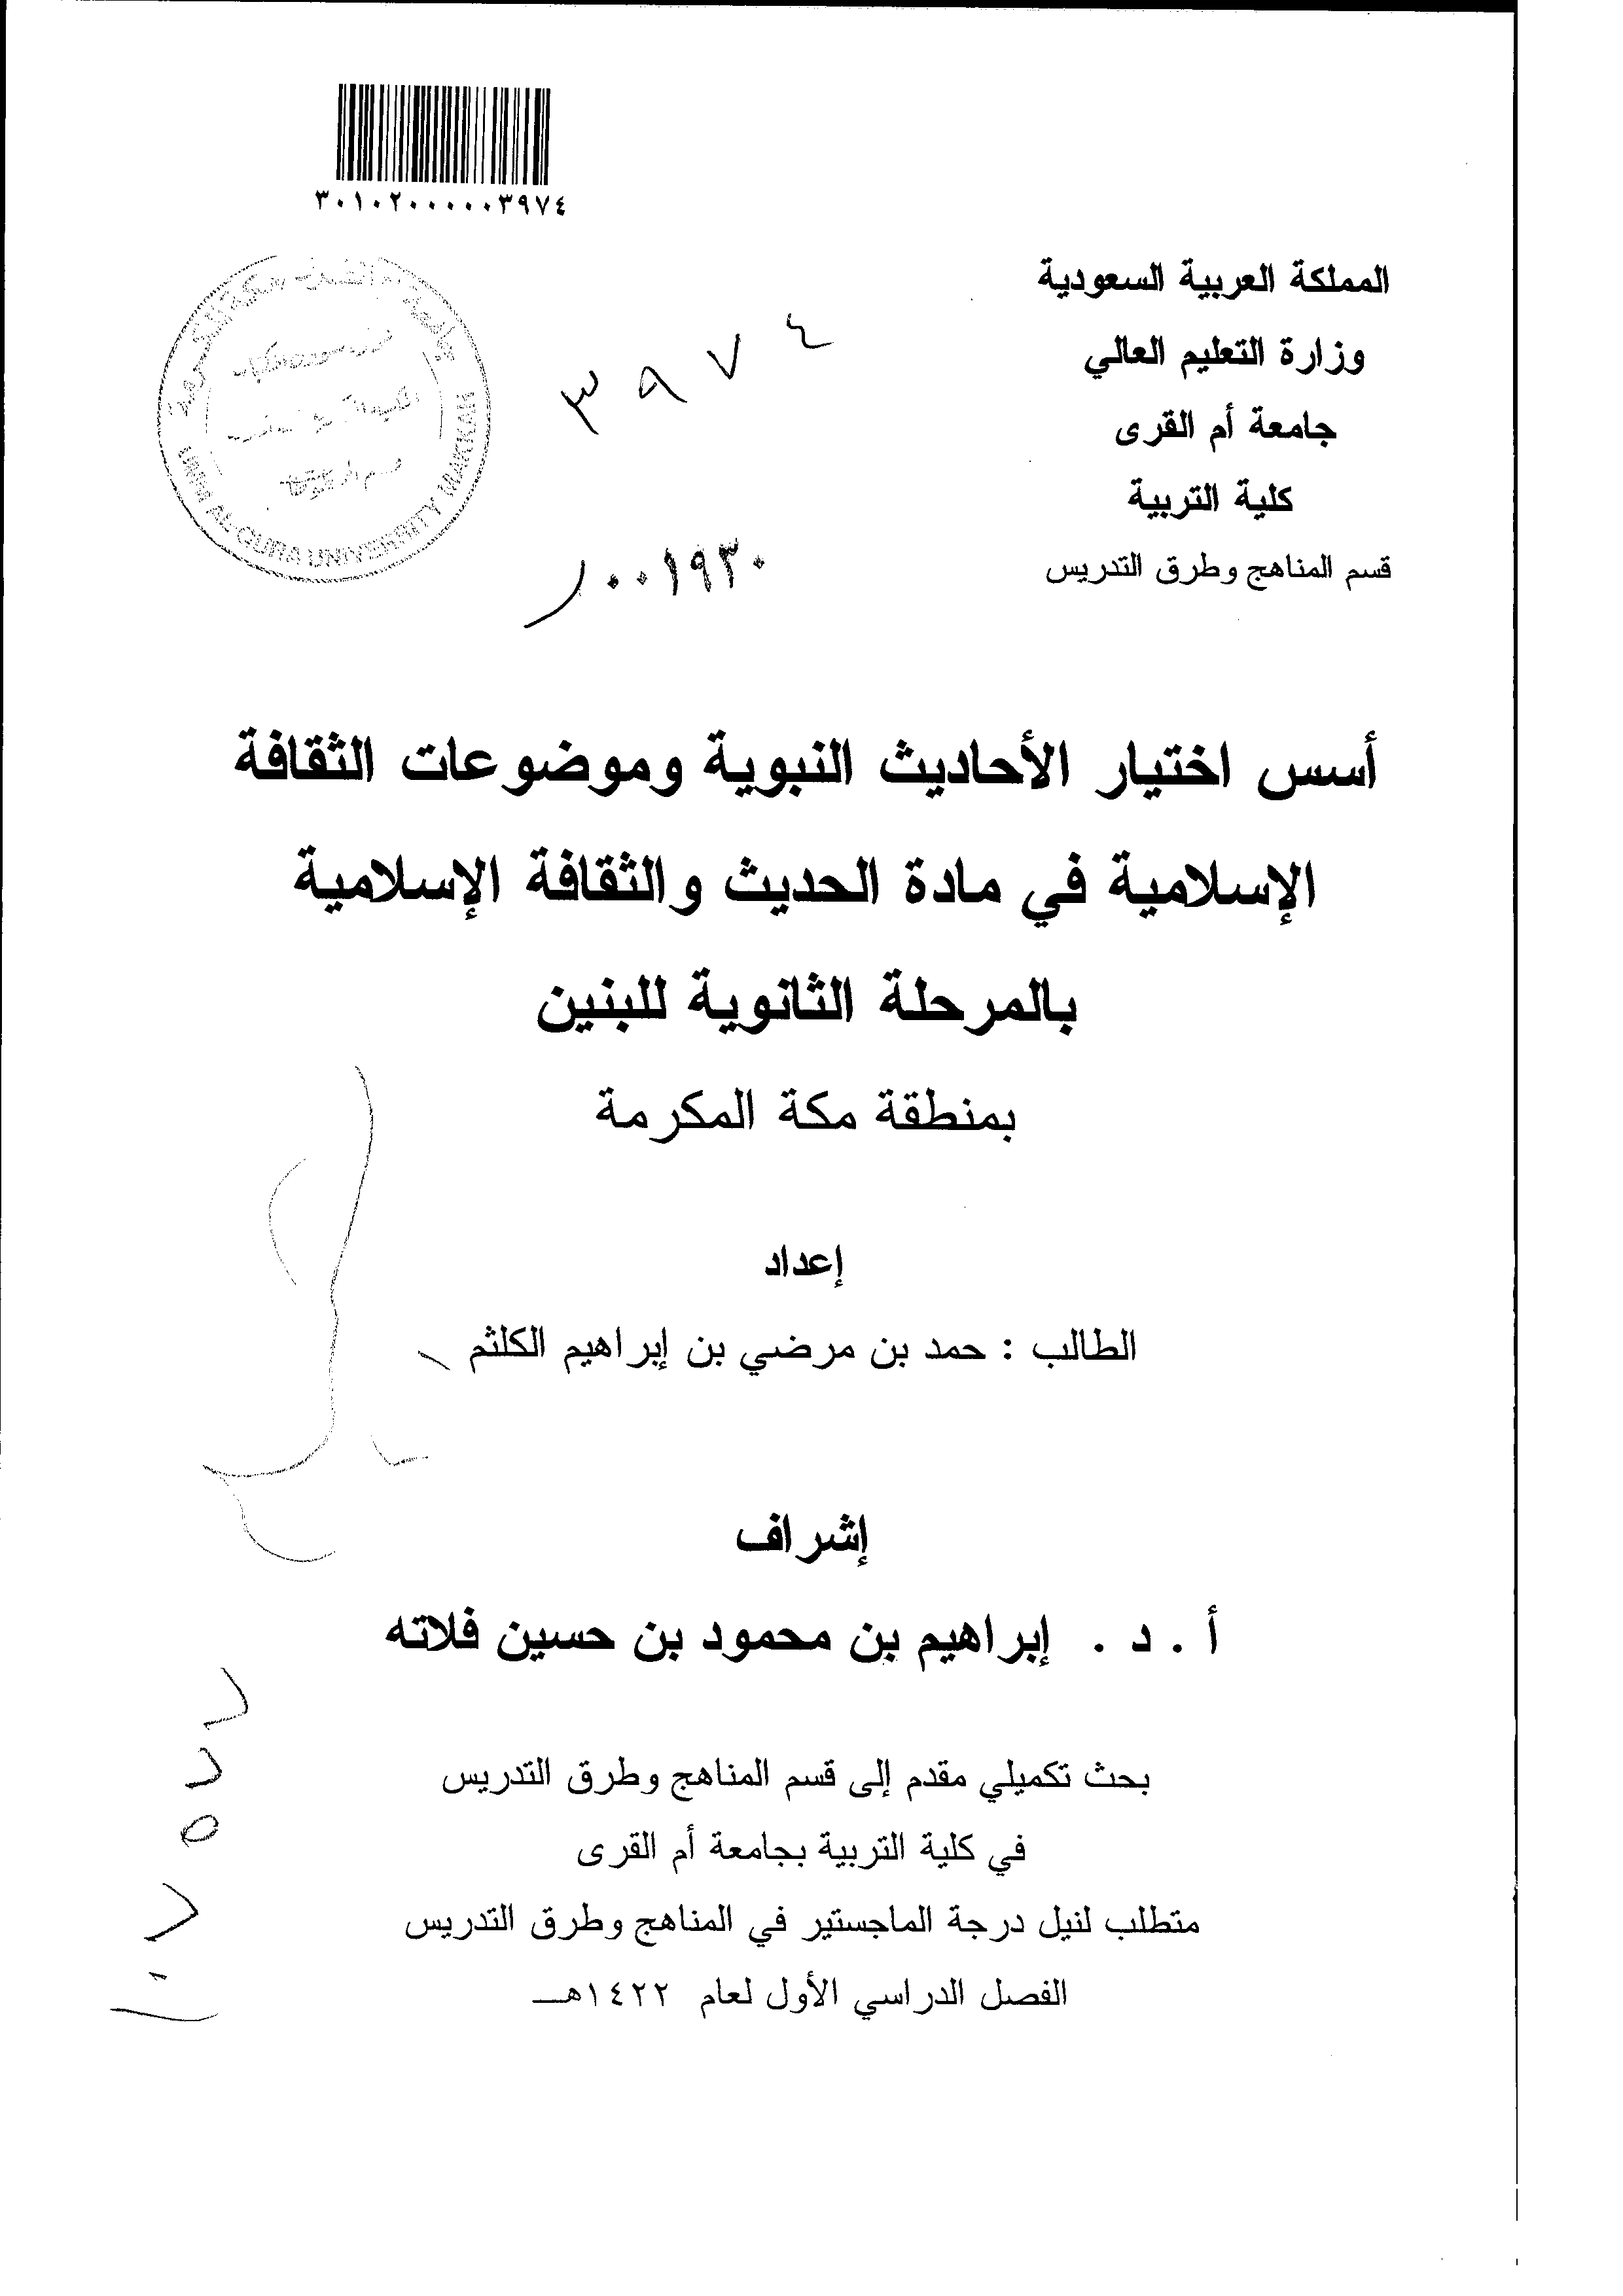 ٣٠١٠٢٠٠٠٠٠٣٩٧٤
المملكة العربية السعودية
وزارة التعليم العالي
جامعة أم القرى
كلية التربية
قسم المناهج وطرق التدريس
٣٩٧٤
٠٠١٩٣٠
UMM AL-QURA UNIVERSITY MAKKAH
أسس اختيار الأحاديث النبوية وموضوعات الثقافة
الإسلامية في مادة الحديث والثقافة الإسلامية
بالمرحلة الثانوية للبنين
بمنطقة مكة المكرمة
إعداد
الطالب : حمد بن مرضي بن إبراهيم الكلثم
إشراف
أ . د . إبراهيم بن محمود بن حسين فلاته
بحث تكميلي مقدم إلى قسم المناهج وطرق التدريس
في كلية التربية بجامعة أم القرى
متطلب لنيل درجة الماجستير في المناهج وطرق التدريس
الفصل الدراسي الأول لعام ١٤٢٢هـــ